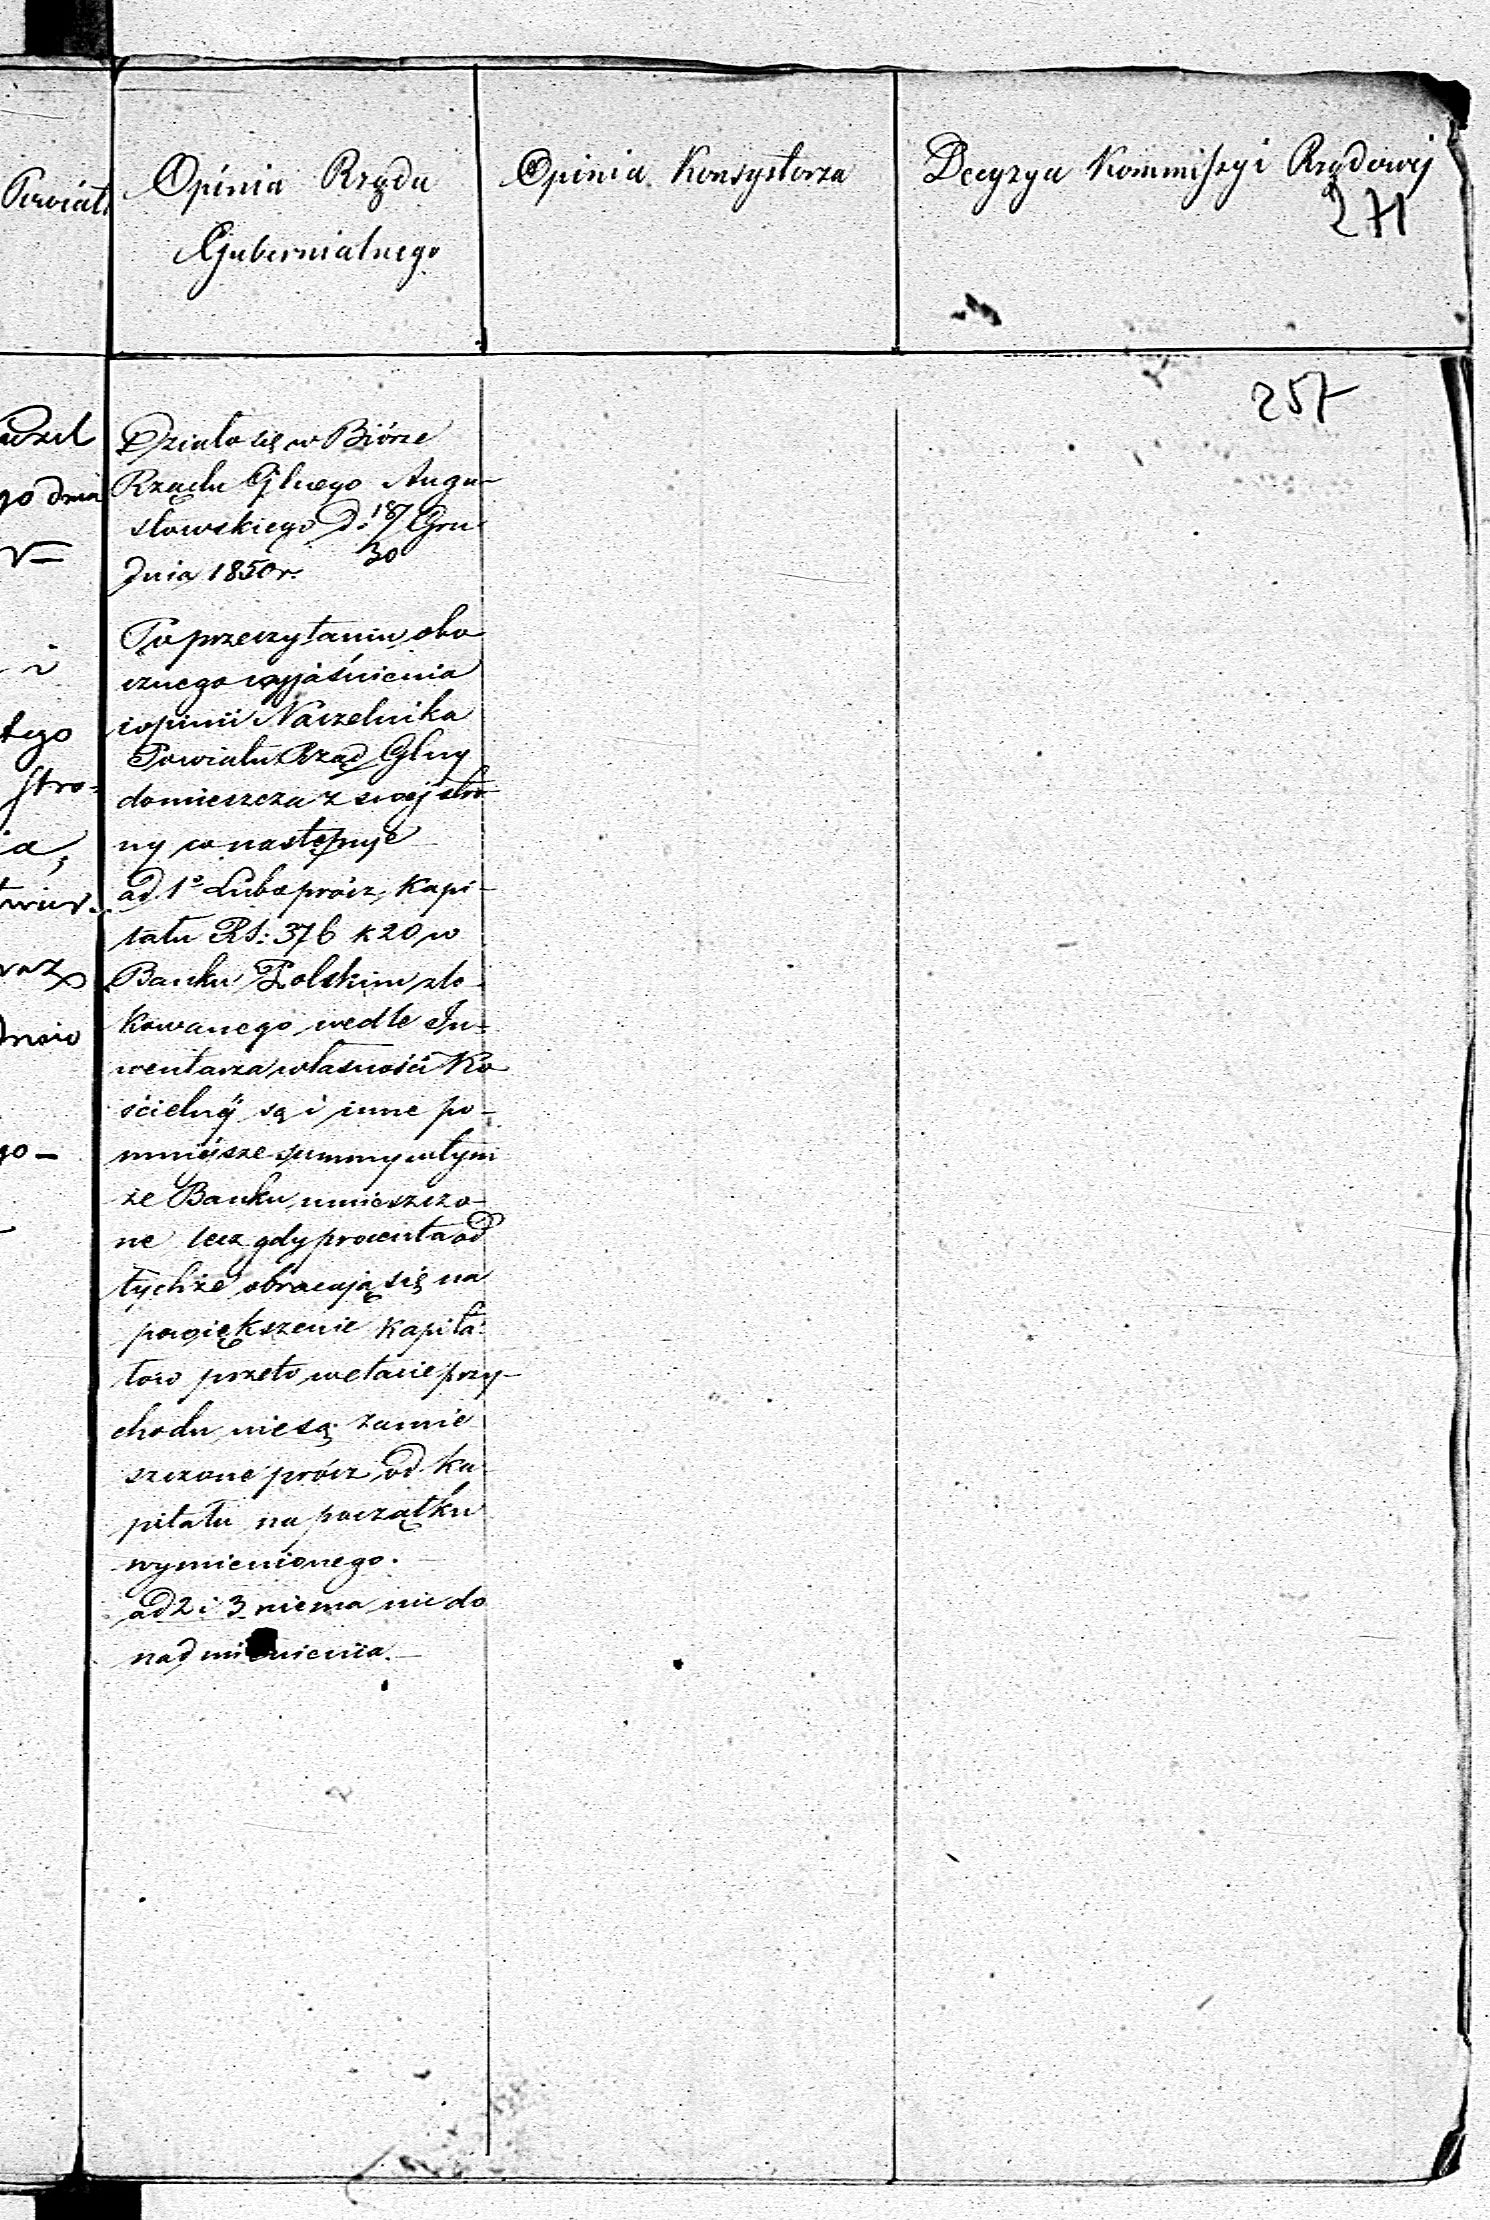 Powiatu
Opinia Rządu
Gubernialnego
Opinia Konsystorza
Decyzya Kommissyi Rządowej
271
257
go dnia
tego
stro=
ia,
go –
Działo się w Biórze
Rządu Glnego Augu-
stowskiego d. 18/30 Gru-
dnia 1850 r.
Po przeczytaniu obo
cznego wyjaśnienia
i opinii Naczelnika
Powiatu Rząd Glny
domieszcza z swej stro-
ny co następuje
ad 1° Lubo prócz Kapi-
tału RS: 376 k 20 w
Banku Polskim ulo-
kowanego wedle In-
wentarza własności Ko
ścielnéj są i inne po-
mniejsze summy w tym
że Banku umieszczo-
ne lecz gdy procenta od
tychże obracają się na
powiększenie kapita-
łów przeto w etacie przy-
chodu nie są zamie
szczone prócz od ka-
pitału na początku
wymienionego. –
ad 2 i 3 niema nic do
nadmienienia. –